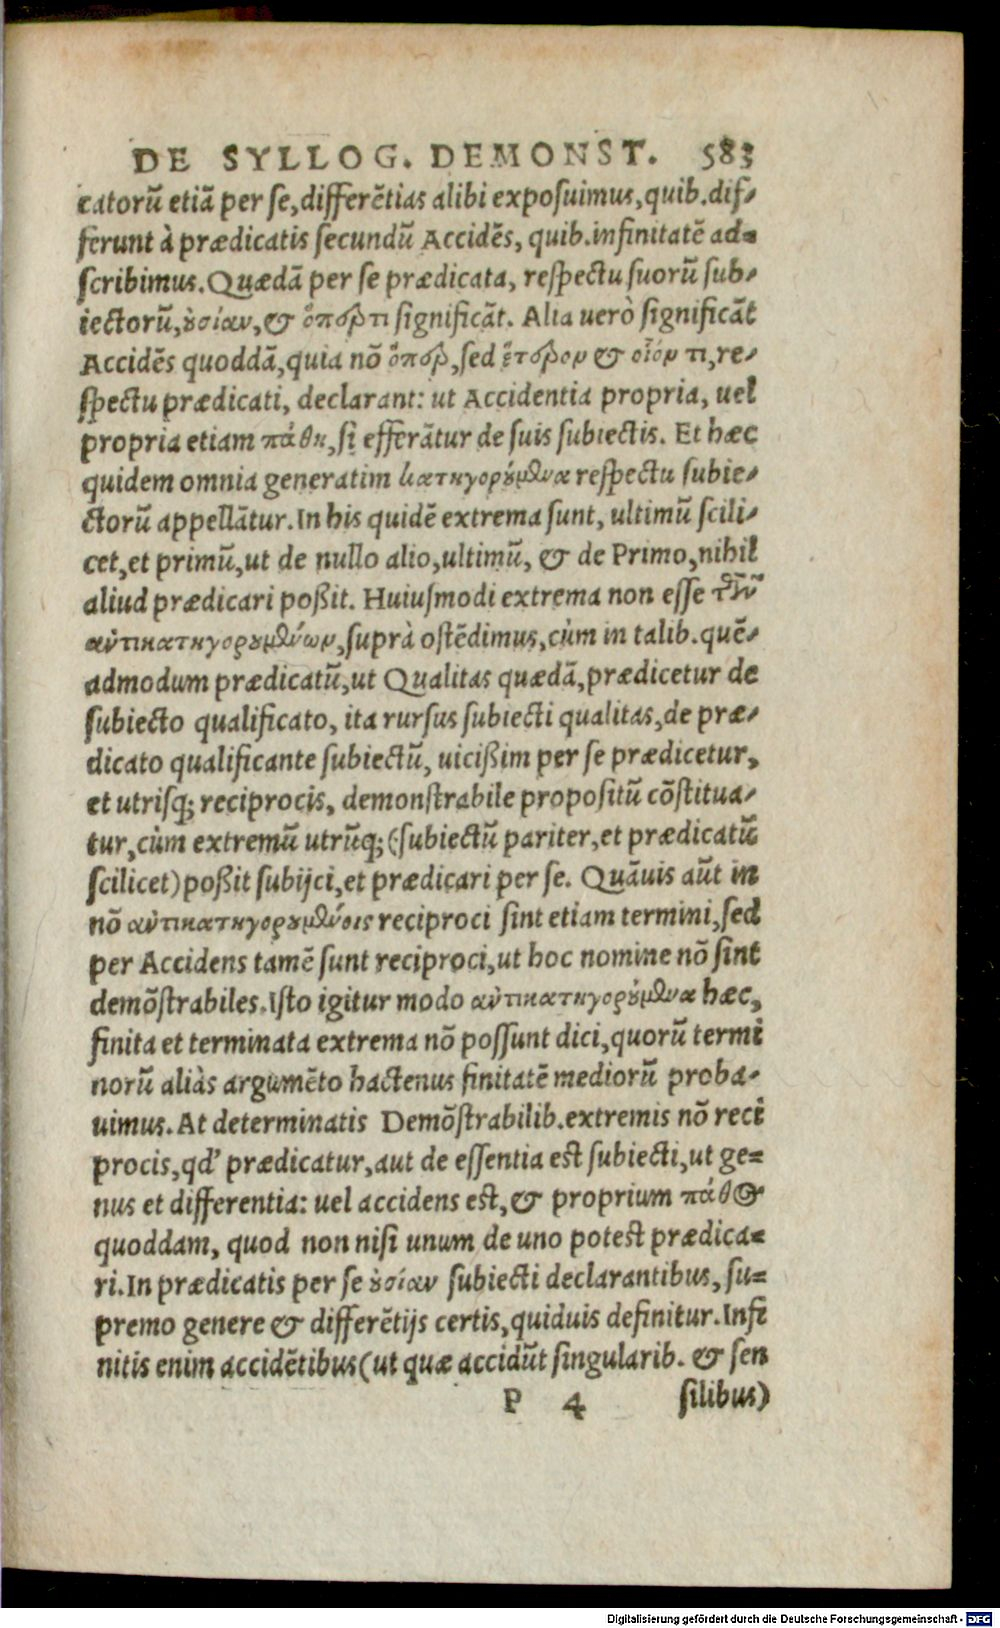 DE SYLLOG. DEMONST. 583
catorū etiā per se, differētias alibi exposuimus, quib. dif-
ferunt à prædicatis secundū Accidēs, quib. infinitatē ad-
scribimus. Quædā per se prædicata, respectu suorū sub-
iectorū, οὐσίαν, & ὅπερ τι significāt. Alia uerò significāt
Accidēs quoddā, quia nō ὅπερ, sed ἕτερον & οἷόν τι, re-
spectu prædicati, declarant: ut Accidentia propria, uel
propria etiam πάθη, si efferātur de suis subiectis. Et hæc
quidem omnia generatim κατηγορούμενα respectu subie-
ctorū appellātur. In his quidē extrema sunt, ultimū scili-
cet, et primū, ut de nullo alio, ultimū, & de Primo, nihil
aliud prædicari poßit. Huiusmodi extrema non esse τῶν
ἀντικατηγορουμένων, suprà ostēdimus, cùm in talib. quē-
admodum prædicatū, ut Qualitas quædā, prædicetur de
subiecto qualificato, ita rursus subiecti qualitas, de præ-
dicato qualificante subiectū, uicißim per se prædicetur,
et utrisq; reciprocis, demonstrabile propositū cōstitua-
tur, cùm extremū utrūq; (subiectū pariter, et prædicatū
scilicet) poßit subijci, et prædicari per se. Quāuis aūt in
nō ἀντικατηγορουμένοις reciproci sint etiam termini, sed
per Accidens tamē sunt reciproci, ut hoc nomine nō sint
demōstrabiles. Isto igitur modo ἀντικατηγορούμενα hæc,
finita et terminata extrema nō possunt dici, quorū termi
norū aliàs argumēto hactenus finitatē mediorū proba-
uimus. At determinatis Demōstrabilib. extremis nō reci
procis, qd' prædicatur, aut de essentia est subiecti, ut ge-
nus et differentia: uel accidens est, & proprium πάθος
quoddam, quod non nisi unum de uno potest prædica-
ri. In prædicatis per se οὐσίαν subiecti declarantibus, su-
premo genere & differētijs certis, quiduis definitur. Infi
nitis enim accidētibus (ut quæ accidūt singularib. & sen
P 4 silibus)
Digitalisierung gefördert durch die Deutsche Forschungsgemeinschaft - DFG